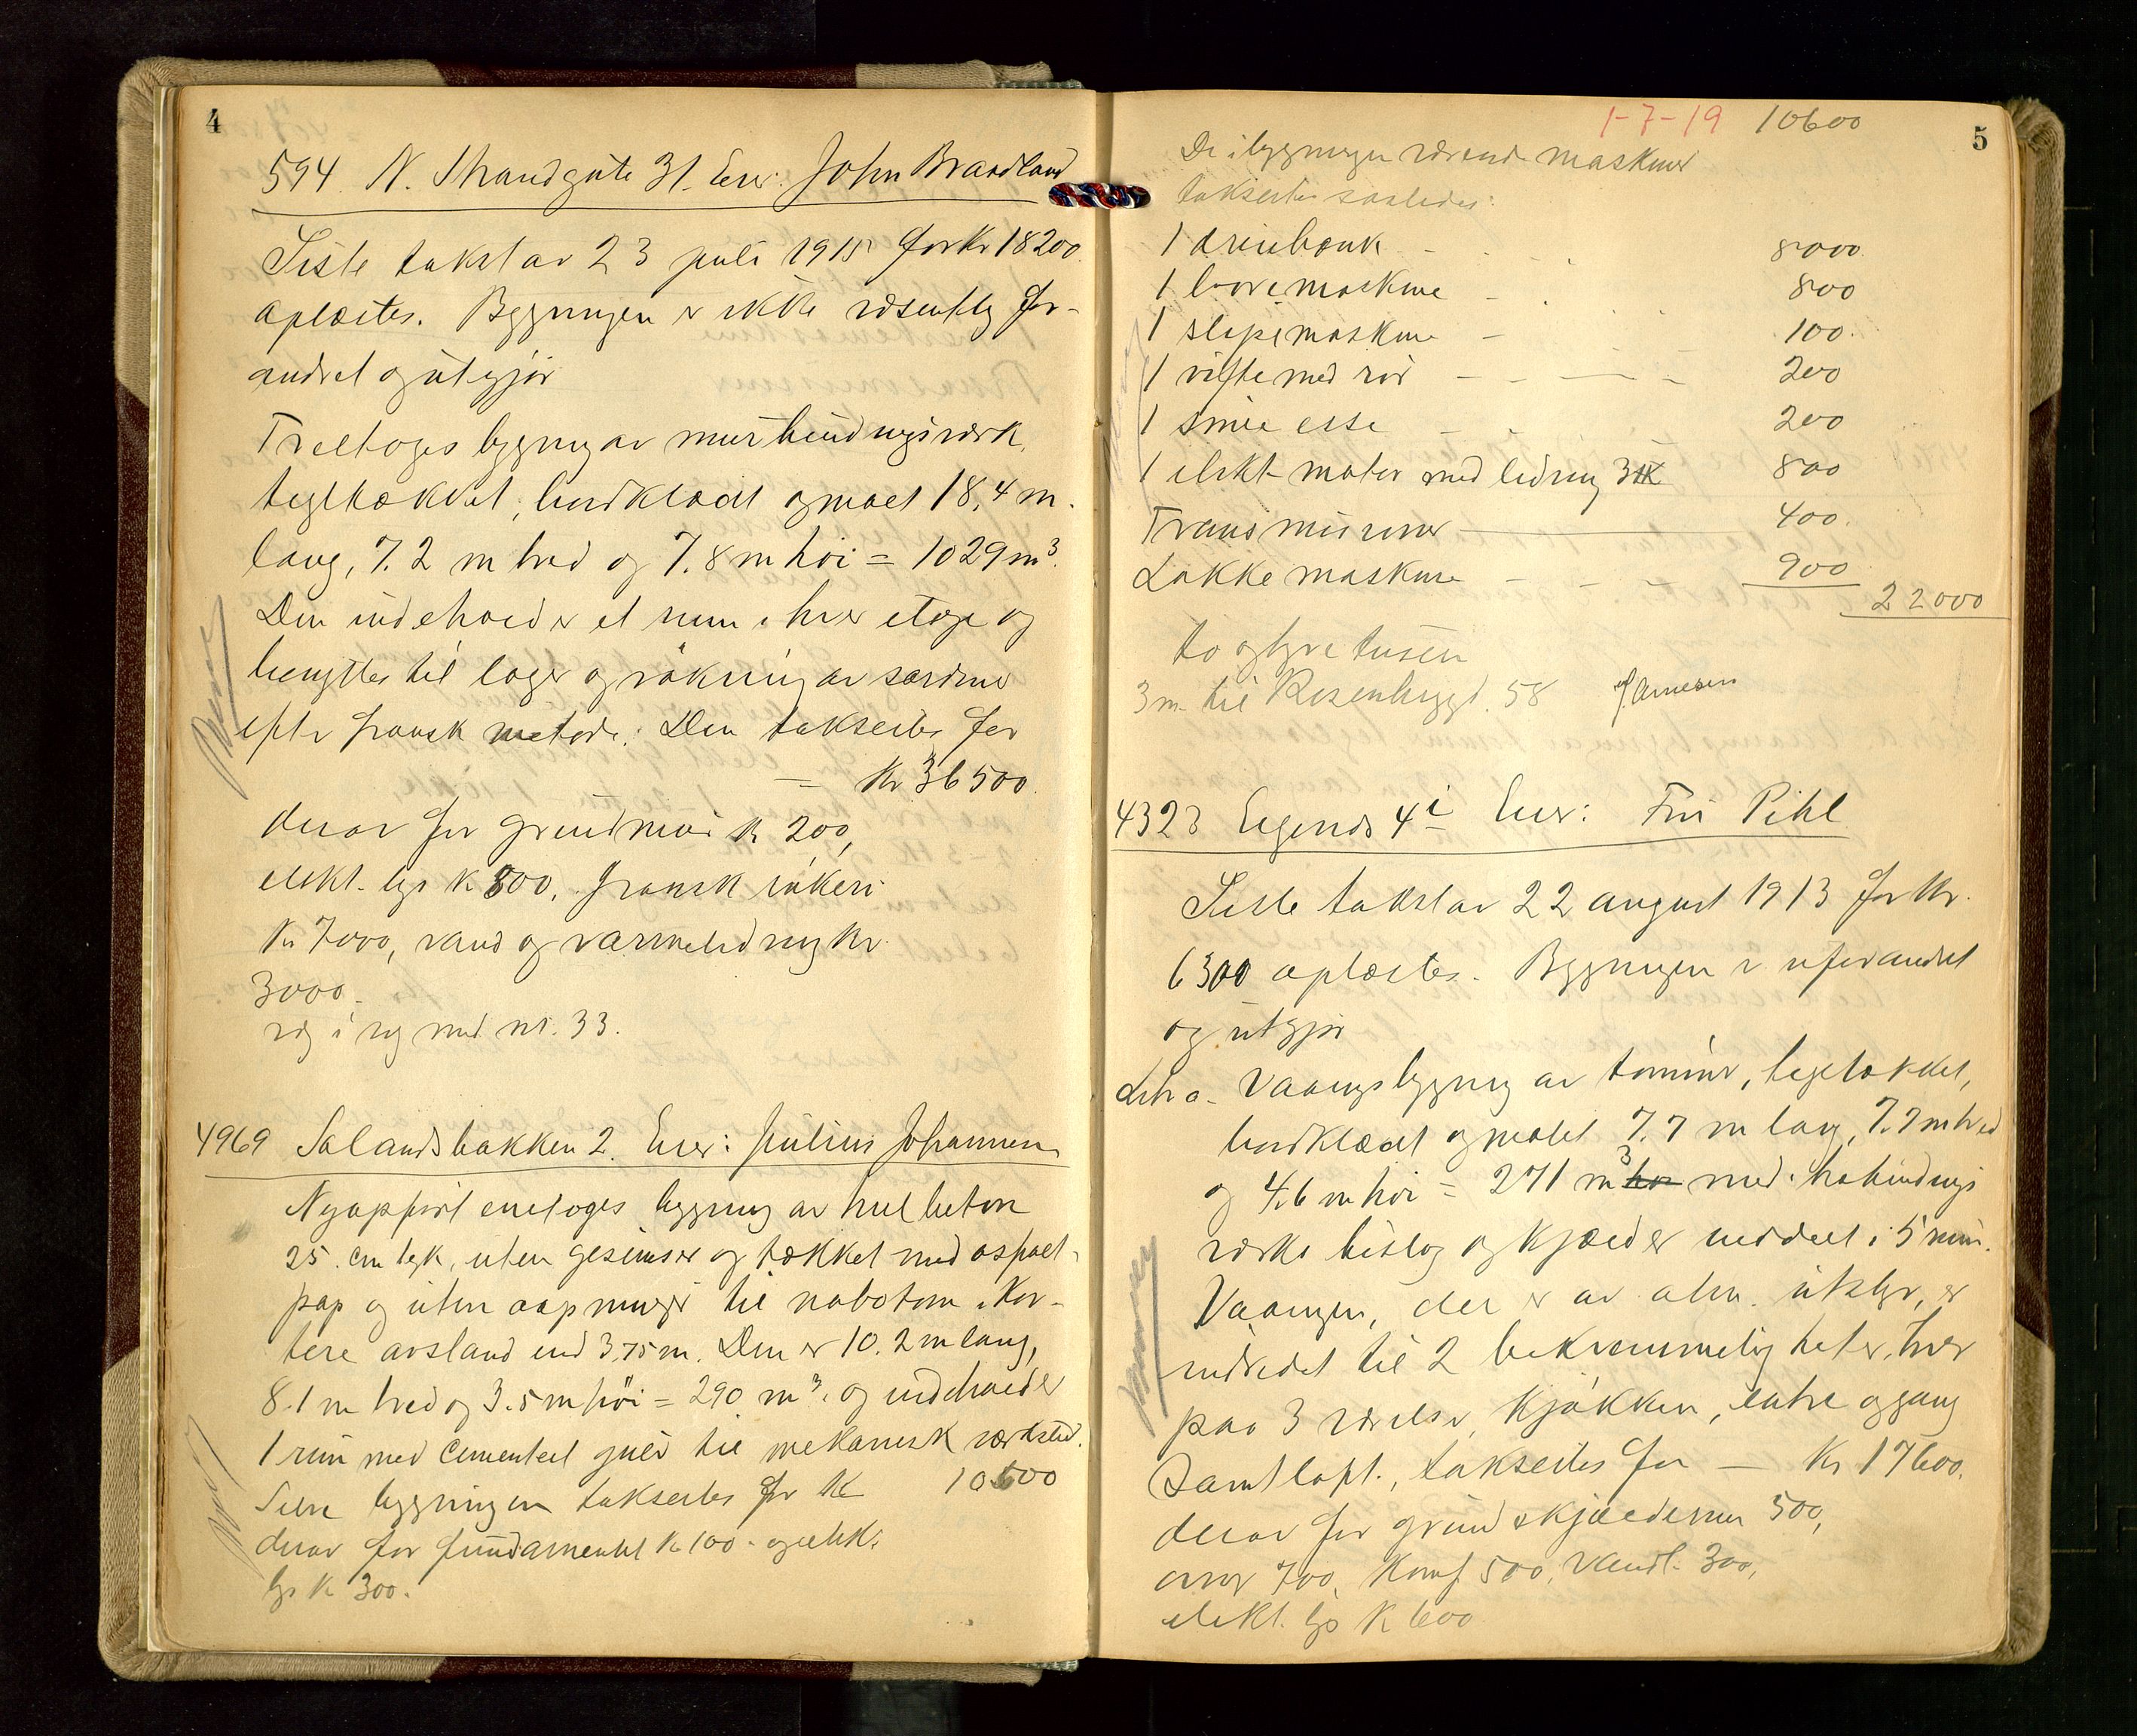 4
594. N. Strandgate 31. Eier: John Braadland
Siste takst av 23 juli 1915 for Kr 18200.
oplæstes. Bygningen er ikke væsentlig for-
andret og utgjør
Treetages bygning av mur bindingsværk,
tegltækket, bordklædt og maalt 18,4 m.
lang, 7.2 m bred og 7.8 m høi = 1029 m³.
Den indeholder et rum i hver etage og
benyttes til lager og røkning av sardiner
efter fransk metode. Den takseres for
— Kr 36500.
derav for grundmur K 200,
elekt. lys K 800, fransk røkeri
Kr 7000, vand og varmeledning Kr.
3000.
væg i væg med nr. 33.
4969 Solandsbakken 2. Eier: Julius Johannesen
Nyopført enetages bygning av hul beton
25. cm tyk, uten gesimser og tækket med asfalt-
pap og uten aapninger til nabotom i kor-
tere avstand end 3,75 m. Den er 10.2 m lang,
8.1 m bred og 3.5 m høi = 290 m³. og indeholder
1 rum med cementert gulv til mekanisk verksted.
Selve bygningen takseres for K 10600
derav for fundamentet K 100.- og elekt.
lys K 300.
5
1-7-19 10600
De i bygningen værende maskiner
takseres saaledes:
1 dreiebænk - - - 8000.
1 boremaskine - - 800
1 slipemaskine - - 100.
1 vifte med rør - - — - 200
1 smie esse - - 200
1 elekt. motor med ledning 3 HK 800
Transmisioner — 400.
Lokkemaskine - - - 900
22000
to og tyve tusen
3 m til Rosenbergt. 58 J. Arnesen
4323 Eigenes 4 i Eier: Fru Pihl
Siste takst av 22 august 1913 for Kr.
6300 oplæstes. Bygningen er uforandret
og utgjør
Litr a. Vaaningsbygning av tømmer, tegltækket,
bordklædt og maalt 7.7 m lang, 7.7 m bred
og 4.6 m høi = 271 m³ med i trebindings
værks bislag og kjælder inddelt i 5 rum.
Vaaningen, der er av alm. utstyr, er
indredet til 2 bekvemmeligheter, hver
paa 3 værelser, kjøkken, entre og gang
samt loft., takseres for — Kr 17600.
derav for grund & kjældermur 500,
ovner 700, Komf 500, Vandl. 300,
elekt. lys K 600